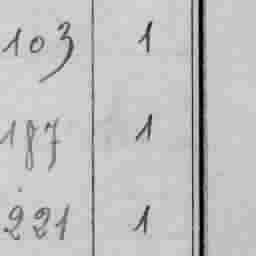 103 1
187 1
221 1